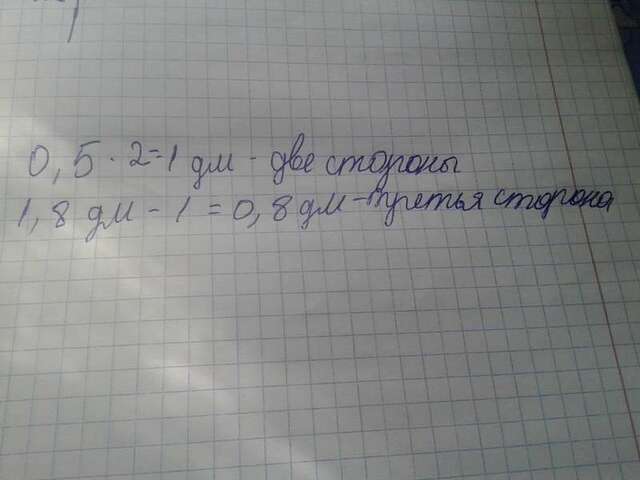 0,5 · 2=1 дм - две стороны
1,8 дм - 1 = 0,8 дм - третья сторона